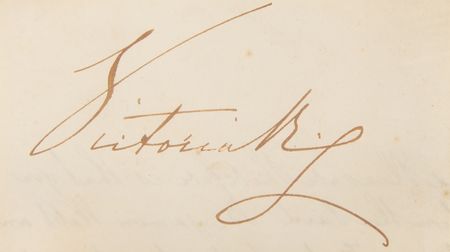 Victoria R.